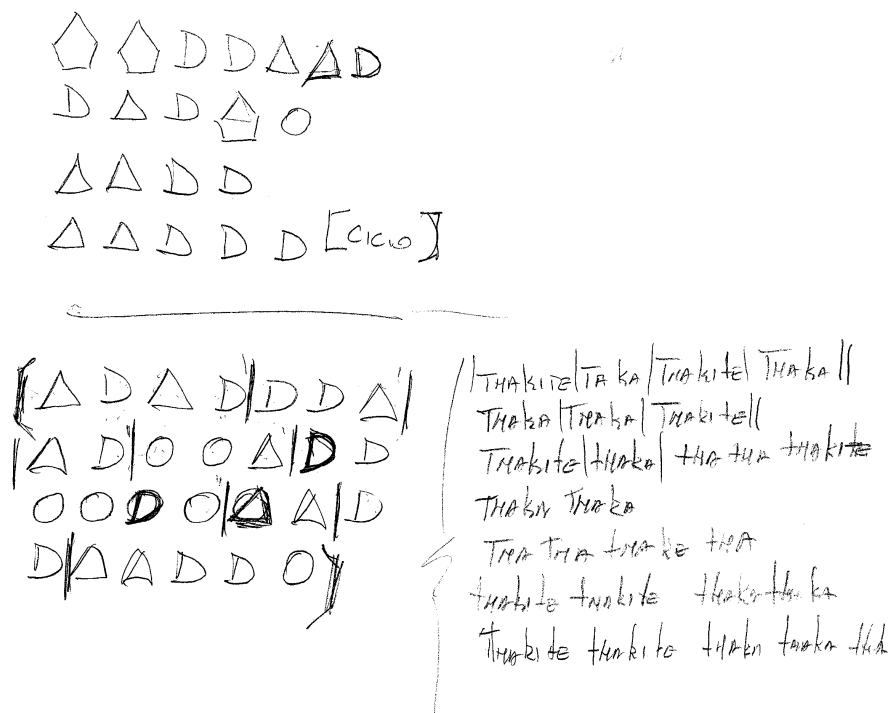 D D D
D D
D D
D D D [CICLO]
D D D D
D D D
D D
D D D
|THAKITE|TAKA|THAKITE|THAKA||
THAKA|THAKA|THAKITE||
THAKITE|thAKA| thA thA thAKItE
THAKA THAKA
THA THA thAKE thA
thAKItE thAKItE thAKA thAKA
THAKItE thAKItE thAKA thAKA thA